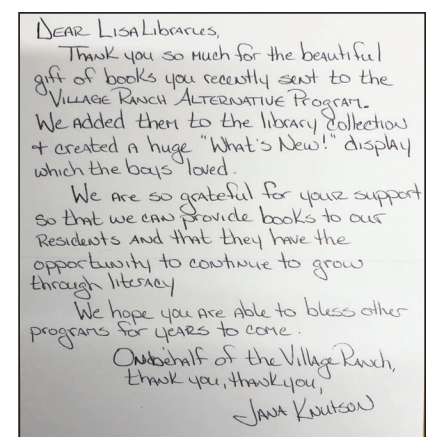 Dear Lisa Libraries,
Thank you so much for the beautiful
gift of books you recently sent to the
Village Ranch Alternative Program.
We added them to the library collection
+ created a huge "What's New!" display
which the boys loved.
We are so grateful for your support
so that we can provide books to our
Residents and that they have the
opportunity to continue to grow
through literacy
We hope you are able to bless other
programs for years to come.
On behalf of the Village Ranch,
thank you, thank you,
Jana Knutson